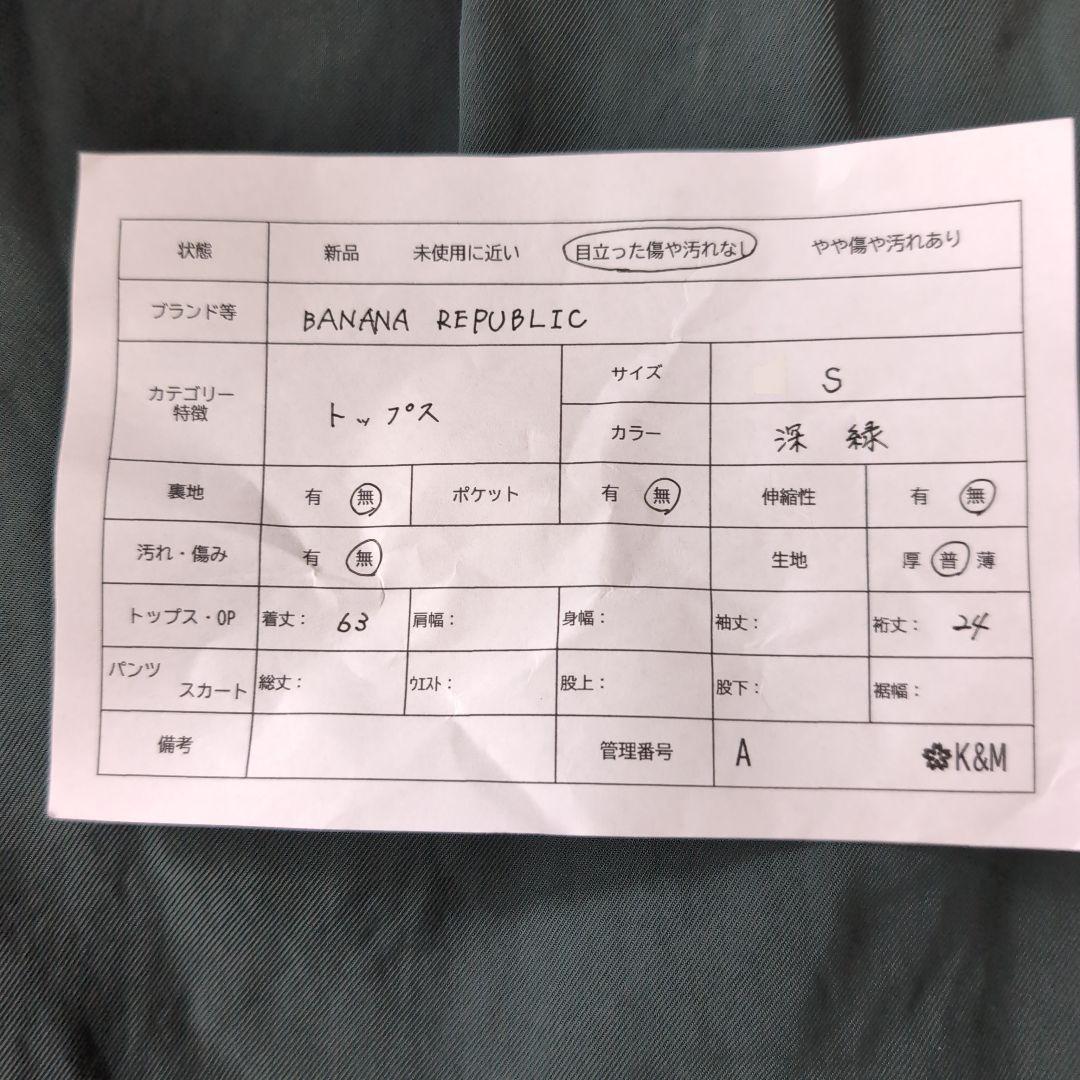 状態 新品 未使用に近い 目立った傷や汚れなし やや傷や汚れあり
ブランド等 BANANA REPUBLIC
カテゴリー
特徴 トップス サイズ S
カラー 深緑
裏地 有 無 ポケット 有 無 伸縮性 有 無
汚れ・傷み 有 無 生地 厚 普 薄
トップス・OP 着丈: 63 肩幅: 身幅: 袖丈: 裄丈: 24
パンツ
スカート 総丈: ウエスト: 股上: 股下: 裾幅:
備考 管理番号 A K&M